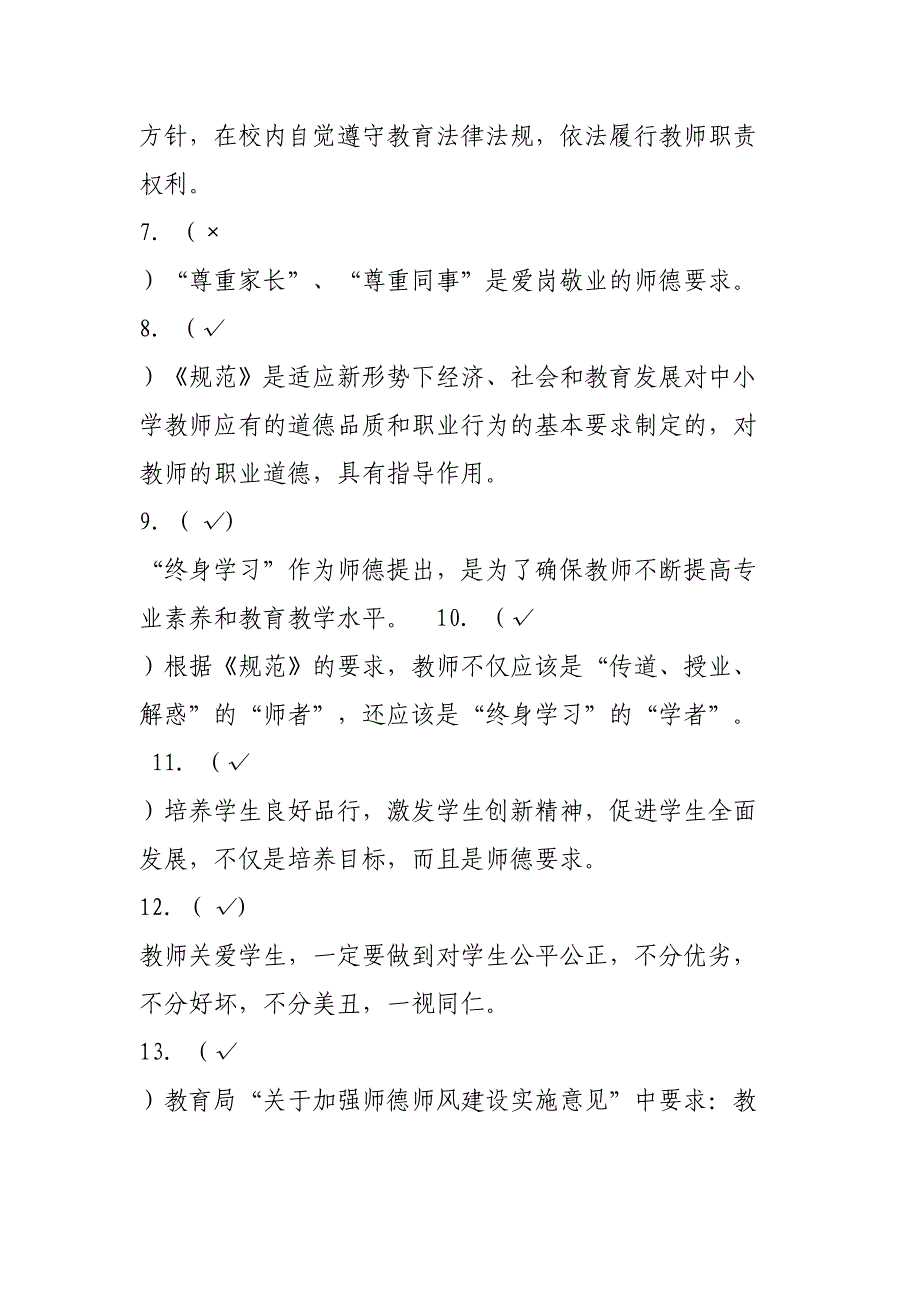 方针，在校内自觉遵守教育法律法规，依法履行教师职责
权利。
7．（ ×
）“尊重家长”、“尊重同事”是爱岗敬业的师德要求。
8．（√
）《规范》是适应新形势下经济、社会和教育发展对中小
学教师应有的道德品质和职业行为的基本要求制定的，对
教师的职业道德，具有指导作用。
9．（ √）
“终身学习”作为师德提出，是为了确保教师不断提高专
业素养和教育教学水平。 10．（√
）根据《规范》的要求，教师不仅应该是“传道、授业、
解惑”的“师者”，还应该是“终身学习”的“学者”。
11．（√
）培养学生良好品行，激发学生创新精神，促进学生全面
发展，不仅是培养目标，而且是师德要求。
12．（ √）
教师关爱学生，一定要做到对学生公平公正，不分优劣，
不分好坏，不分美丑，一视同仁。
13．（√
）教育局“关于加强师德师风建设实施意见”中要求：教